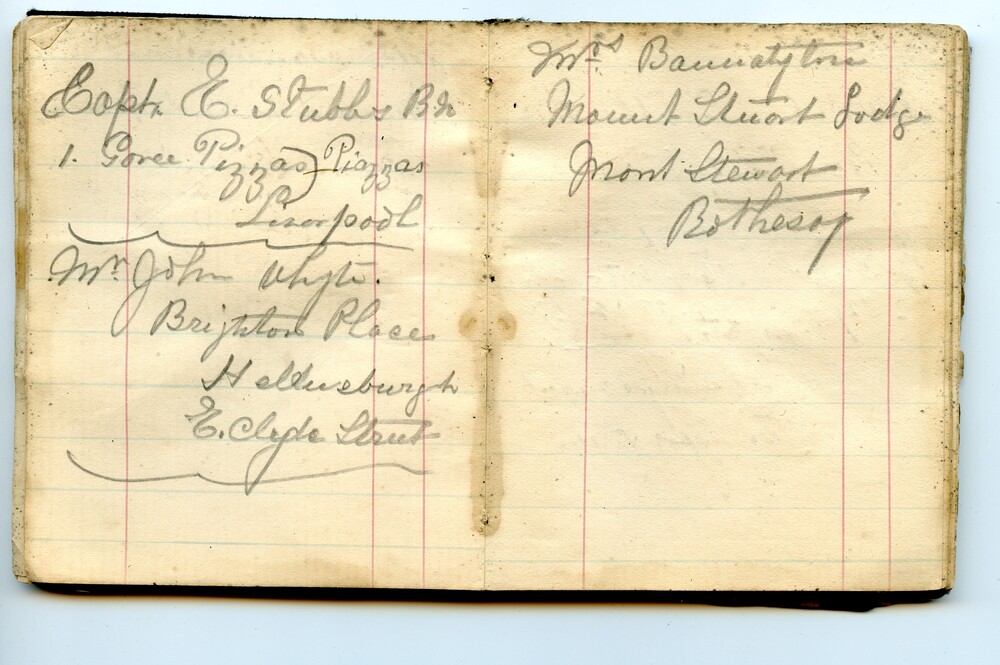 Capt. E. Stubbs
1. Goree Pizzas) Piazzas
Liverpool
Mr. John Whyte.
Brighton Place
Hellnsburgh
E. Clyde Street
Mrs. Bannatyton
Mount Stuart Lodge
Mont Stewart
Bothesay